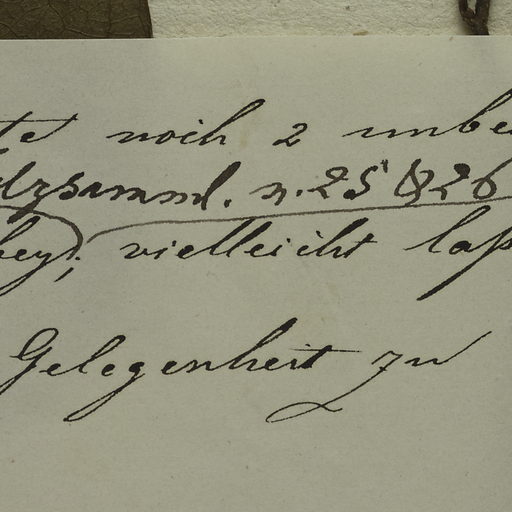 te noch 2 unbe
lzsamml. n. 25 & 26
bey); vielleicht laß
Gelegenheit zu